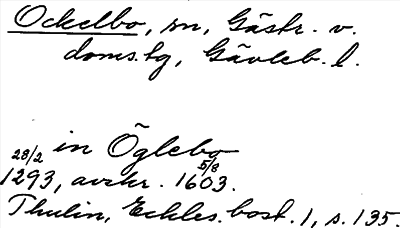 Ockelbo, sn, Gästr. v.
doms.tg, Gävleb. l.
in Öglebo
28/2 5/8
1293, avskr. 1603.
Thulin, Eckles.bost. 1, s. 135.